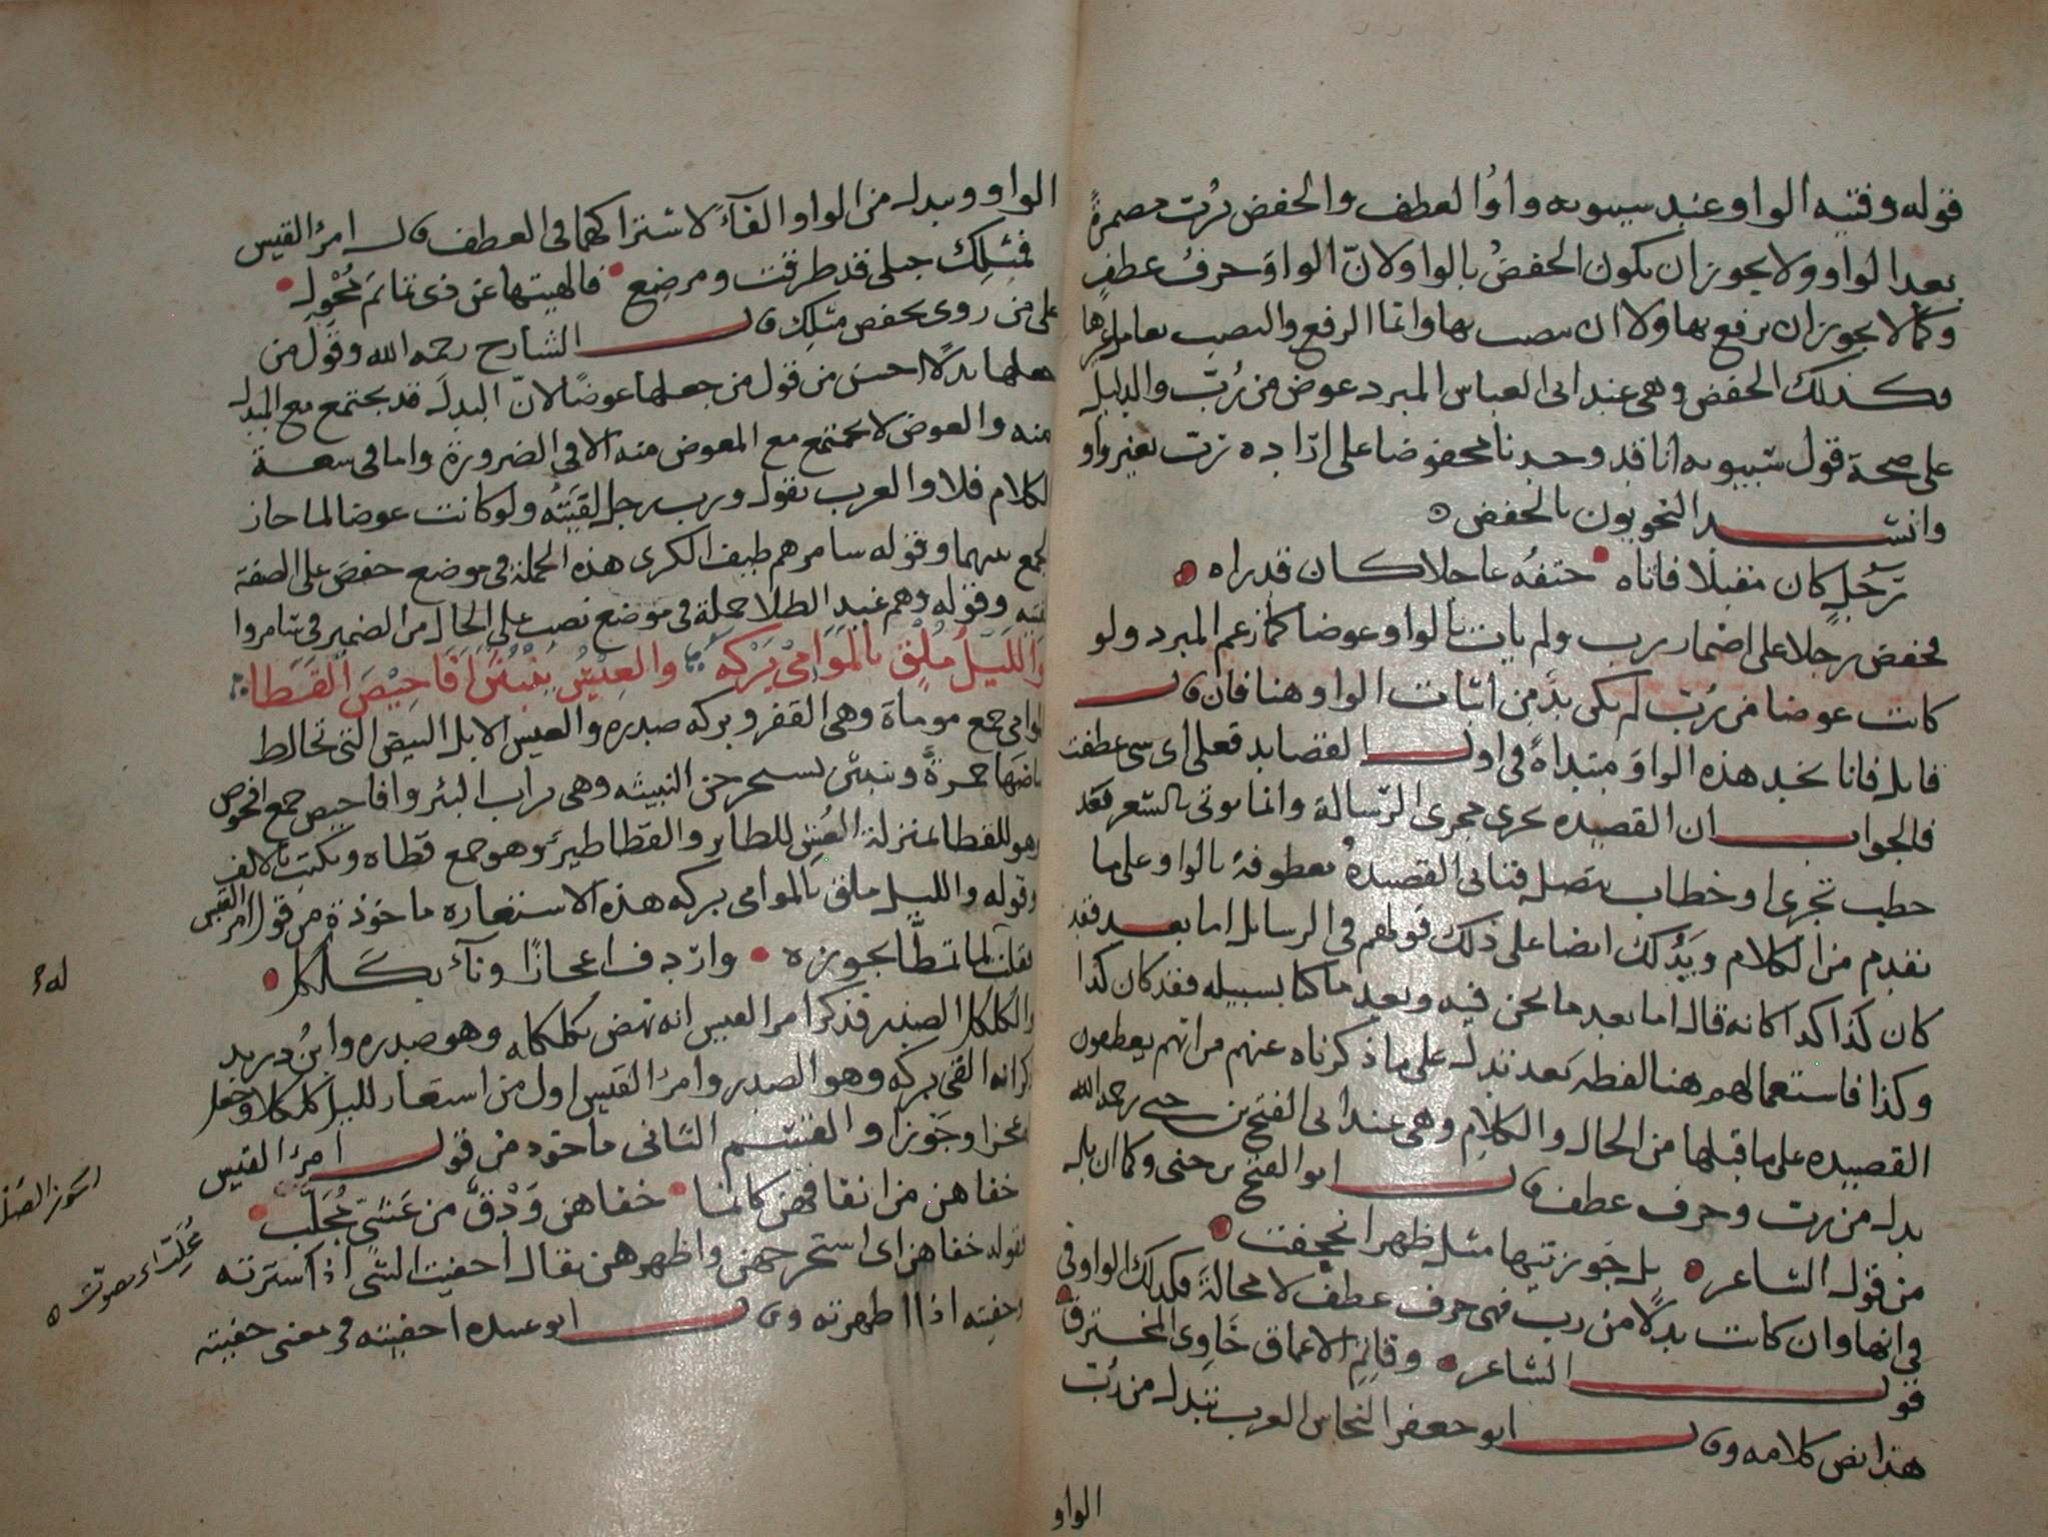 قوله وفتيه الواو عند سيبويه واو العطف والخفض برُبّ مضمرة
بعد الواو ولا يجوز ان يكون الخفضُ بالواو لانّ الواوَ حرفُ عطفٍ
وكما لا يجوز ان يرفع بها ولا ان ينصب بها وانما الرفع والنصب بعامل غيرها
فكذلك الخفض وهى عند ابى العباس المبرد عوض من رُبّ والدليل
على صحة قول سيبويه انا قد وجدنا مخفوضا على ارادة ربّ بغير واو
وانشد النحويون بالخفض ه
رَجُلٍ كان مقبلا فاتاه حتفُه عاجلا كان قد راه
فخفض رجلا على اضمار رب ولم يات بالواو عوضا كما زعم المبرد ولو
كانت عوضا من رُبّ لم يكن بدّ من اثبات الواو هنا فان قال
قايل فانا نجد هذه الواوَ مبتداةً فى اول القصايد فعلى اى شى عطفت
فالجواب ان القصيده تجرى مجرى الرسالة وانما يوتى بالشعر بعد
خطب تجرى او خطاب يتصل فتاتى القصيدهُ معطوفة بالواو على ما
تقدم من الكلام ويَدُلك ايضا على ذلك قولهم فى الرسايل اما بعد فقد
كان كذا كذا كانه قال اما بعد ما نحن فيه وبعد ما كنا بسبيله فقد كان كذا
وكذا فاستعمالهم هنا لفظه بَعد تدل على ما ذكرناه عنهم من انهم يعطفون
القصيده على ما قبلها من الحال والكلام وهى عند ابى الفتح بن جنى رحمه الله
بدل من رب وحرف عطف قال ابو الفتح بن جنى وكما ان بل
من قول الشاعر بل جَوز تيها مثل ظهر الحجفت
فى انها وان كانت بدلًا من رب فهى حرف عطف لا محالة فكذلك الواو فى
قول الشاعر وقاتِمِ الاعماق خَاوِى المخترق
هذا نص كلامه وقال ابو جعفر النحاس العرب تبدل من رُبّ
الواو
الواو وتبدل من الواو الفآءَ لاشتراكهما فى العطف قال امرؤ القيس
فمثلِكِ حبلى قد طرقت ومرضِع فالهيتها عن ذى تمائمَ مُحْوِل
على من روى بخفض مثلِك قال الشارح رحمه الله وقول من
جعلها بدلًا احسن من قول من جعلها عوضًا لانّ البدلَ قد يجتمع مع المبدل
منه والعوض لا يجتمع مع المعوض منه الا فى الضرورة واما فى سعة
الكلام فلا والعرب تقول ورب رجل لقيتُه ولو كانت عوضا لما جاز
الجمع بينهما وقوله سامرهم طيف الكرى هذه الجملة فى موضع خفضَ على الصفة
لفتيه وقوله وهم غيد الطلا جملة فى موضع نصب على الحال من الضمير فى سامروا
واللّيلُ مُلْقٍ بالمَوَامى بَرْكه والعِيْسُ يَنْبُثْنَ اَفَاحِيْصَ القَطَا
الموامى جمع موماة وهى القفر وبركه صدره والعيس الابل البيض التى تخالط
بياضَها حمرةٌ وينبثن يستخرجن النبيثه وهى تراب البئر وافاحيص جمع افحوص
وهو للقطا بمنزلة العُشِ للطاير والقطا طيرٌ وهو جمع قطاه ويكتب بالالف
وقوله والليل ملق بالموامى بركه هذه الاستعاره ماخوذة من قول امرئ القيس
فقلت لما تمطَّا بجوزه واردف اعجازًا وناءَ بكَلكل
والكلكل الصدر فذكر امرؤ القيس انه نهض بكلكله وهو صدره وابنُ دريد
ذكر انه القى بركه وهو الصدر وامرؤ القيس اول من استعار لليل كلكلا وجعل
له
عجزا وجَوزا والقسم الثانى ماخوذ من قول امرئ القيس
خفاهن من انفاقهن كانما خفاهن وَدْقٌ من عَشىٍّ مُجَلّب
فقوله خفاهن اى استخرجهن واظهرهن يقال اخفيت الشى اذا سترته
وخفيته اذا اظهرته وقال ابو عبيده اخفيته فى معنى خفيته